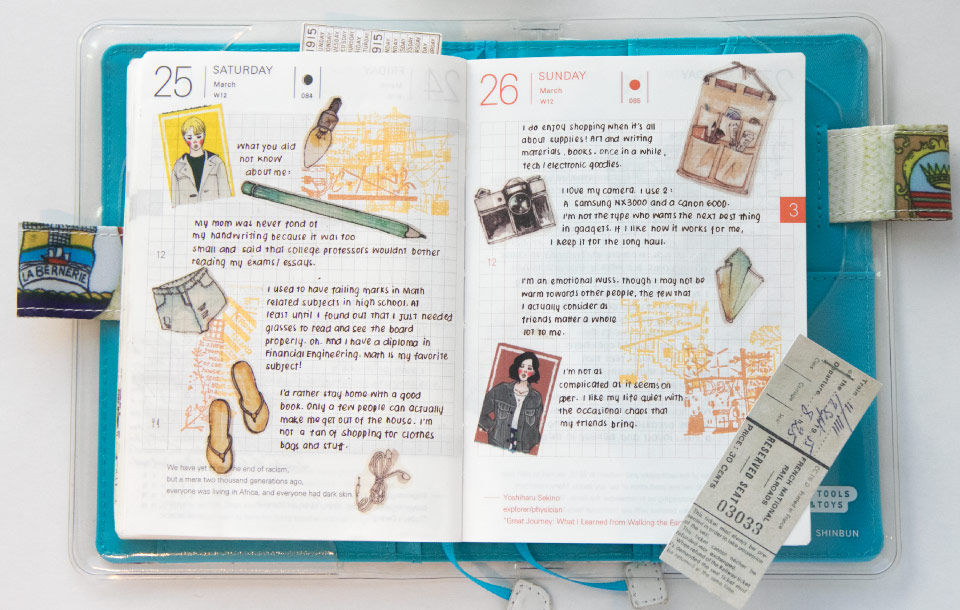 25
SATURDAY
March
W12
084
What you did
not know
about me:
My mom was never fond of
my handwriting because it was too
small and said that college professors wouldnt bother
reading my exams/ essays.
12
I used to have failing marks in Math
related subjects in high school. At
least until I found out that I just needed
glasses to read and see the board
properly. Oh. And I have a diploma in
Financial Engineering. Math is my favorite
subject!
I'd rather stay home with a good
book. Only a few people can actually
make me get out of the house. I'm
not a fan of shopping for clothes
bags and stuff.
We have yet the end of racism,
but a mere two thousand generations ago,
everyone was living in Africa, and everyone had dark skin.
26
SUNDAY
March
W12
085
I do enjoy shopping when it's all
about supplies! Art and writing
materials, books. Once in a while,
tech/electronic goodies.
I love my camera. I use 2:
A Samsung NX3000 and a Canon 600D.
I'm not the type who wants the next best thing
in gadgets. If I like how it works for me,
I keep it for the long haul.
3
12
I'm an emotional wuss. Though I may not be
warm towards other people, the few that
I actually consider as
friends matter a whole
lot to me.
I'm not as
complicated as it seems on
paper. I like my life quiet with
the occasional chaos that
my friends bring.
Yoshiharu Sekino
explorer/physician
"Great Journey: What I Learned from Walking the
LA BERNERIE
FRENCH NATIONAL
RAILROADS
RESERVED SEAT
PRICE: 30 CENTS
03033
TOOLS
&TOYS
SHINBUN